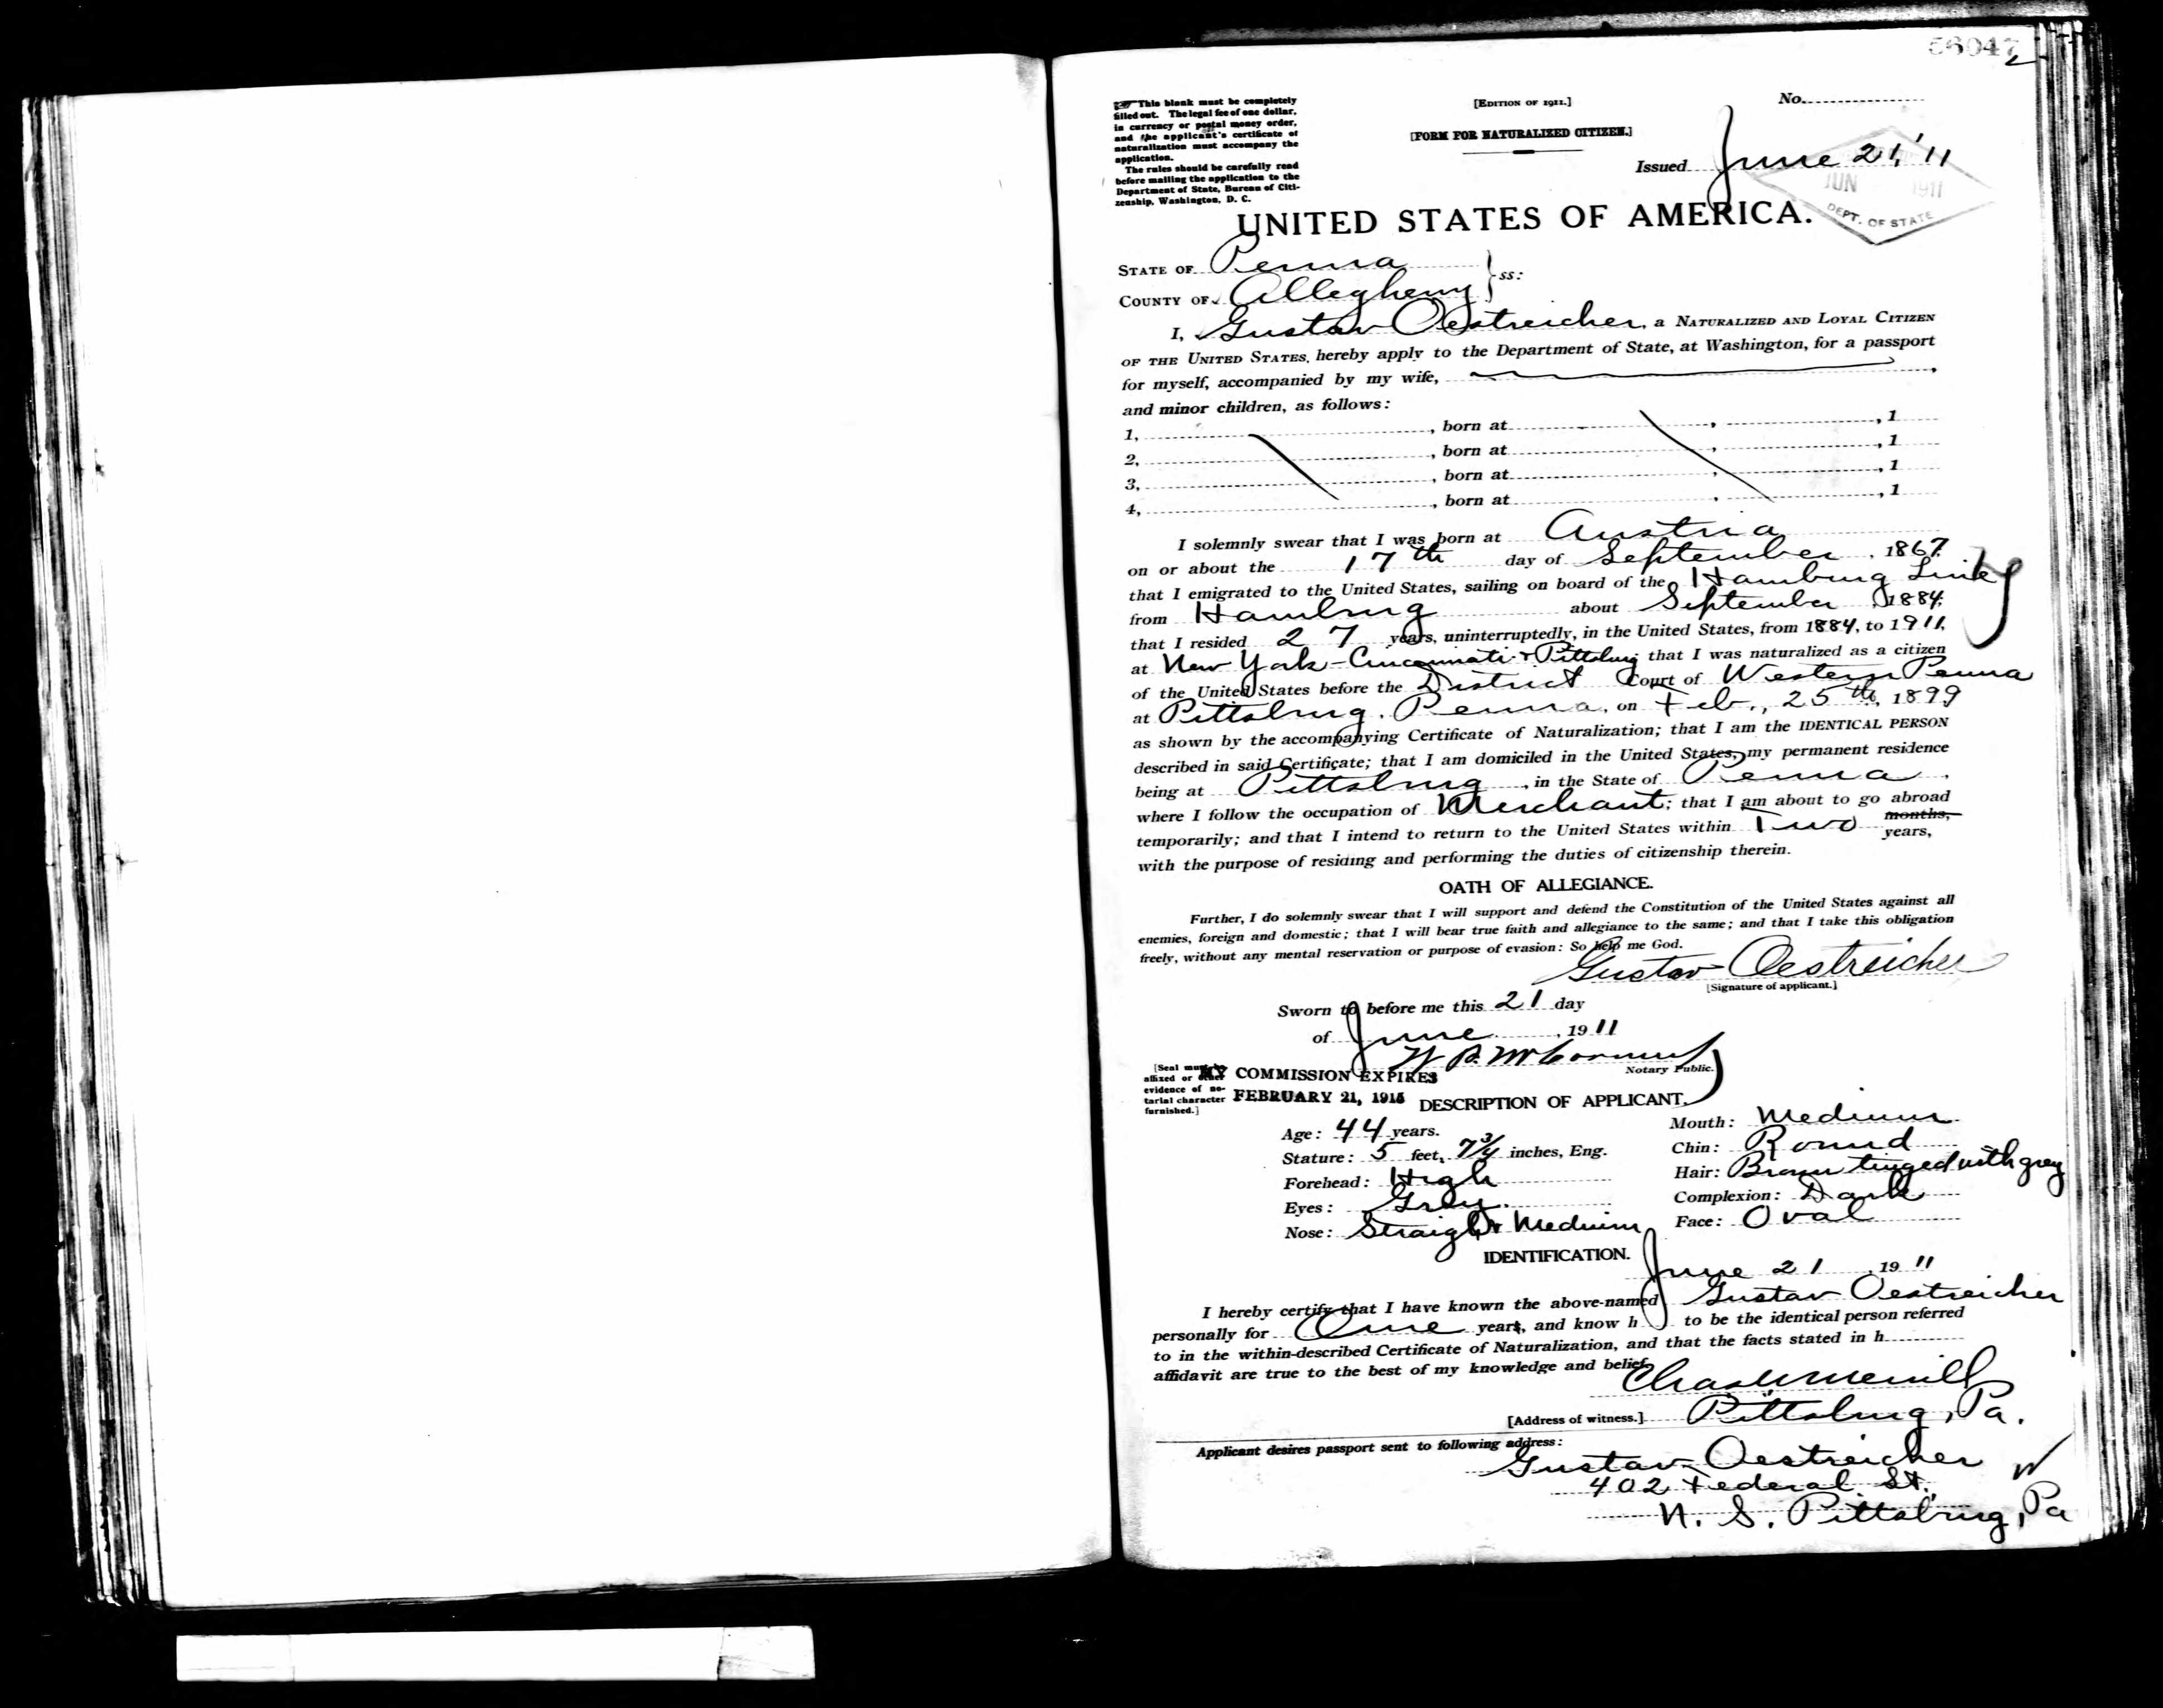 56047
2
This blank must be completely
filled out. The legal fee of one dollar,
in currency or postal money order,
and the applicant's certificate of
naturalization must accompany the
application.
The rules should be carefully read
before mailing the application to the
Department of State, Bureau of Citi-
zenship, Washington, D. C.
[EDITION OF 1911.]
[FORM FOR NATURALIZED CITIZEN.]
No.
Issued June 21, '11
JUN 1911
DEPT. OF STATE
UNITED STATES OF AMERICA.
STATE OF Penna
COUNTY OF Allegheny ss:
I, Gustav Oestreicher, a NATURALIZED AND LOYAL CITIZEN
OF THE UNITED STATES, hereby apply to the Department of State, at Washington, for a passport
for myself, accompanied by my wife,
and minor children, as follows:
1, , born at , , 1
2, , born at , , 1
3, , born at , , 1
4, , born at , , 1
I solemnly swear that I was born at Austria
on or about the 17th day of September, 1867,
that I emigrated to the United States, sailing on board of the Hamburg Line
from Hamburg about September, 1884,
that I resided 27 years, uninterruptedly, in the United States, from 1884, to 1911,
at New York - Cincinnati & Pittsburg that I was naturalized as a citizen
of the United States before the District Court of Western Penna
at Pittsburg, Penna, on Feb., 25th, 1899
as shown by the accompanying Certificate of Naturalization; that I am the IDENTICAL PERSON
described in said Certificate; that I am domiciled in the United States, my permanent residence
being at Pittsburg, in the State of Penna,
where I follow the occupation of Merchant; that I am about to go abroad
temporarily; and that I intend to return to the United States within Two months,
years,
with the purpose of residing and performing the duties of citizenship therein.
OATH OF ALLEGIANCE.
Further, I do solemnly swear that I will support and defend the Constitution of the United States against all
enemies, foreign and domestic; that I will bear true faith and allegiance to the same; and that I take this obligation
freely, without any mental reservation or purpose of evasion: So help me God.
Gustav Oestreicher
[Signature of applicant.]
Sworn to before me this 21 day
of June, 1911
W. B. McCormick
Notary Public.
[Seal must be
affixed or other
evidence of no-
tarial character
furnished.]
MY COMMISSION EXPIRES
FEBRUARY 21, 1915
DESCRIPTION OF APPLICANT.
Age: 44 years.
Stature: 5 feet, 7 3/4 inches, Eng.
Forehead: High
Eyes: Grey.
Nose: Straight & Medium
Mouth: Medium
Chin: Round
Hair: Brown tinged with grey
Complexion: Dark
Face: Oval
IDENTIFICATION.
June 21, 1911
I hereby certify that I have known the above-named Gustav Oestreicher
personally for One years, and know h to be the identical person referred
to in the within-described Certificate of Naturalization, and that the facts stated in h
affidavit are true to the best of my knowledge and belief.
[Address of witness.] Pittsburg, Pa.
Applicant desires passport sent to following address:
Gustav Oestreicher
402 Federal St.
N. S. Pittsburg, Pa